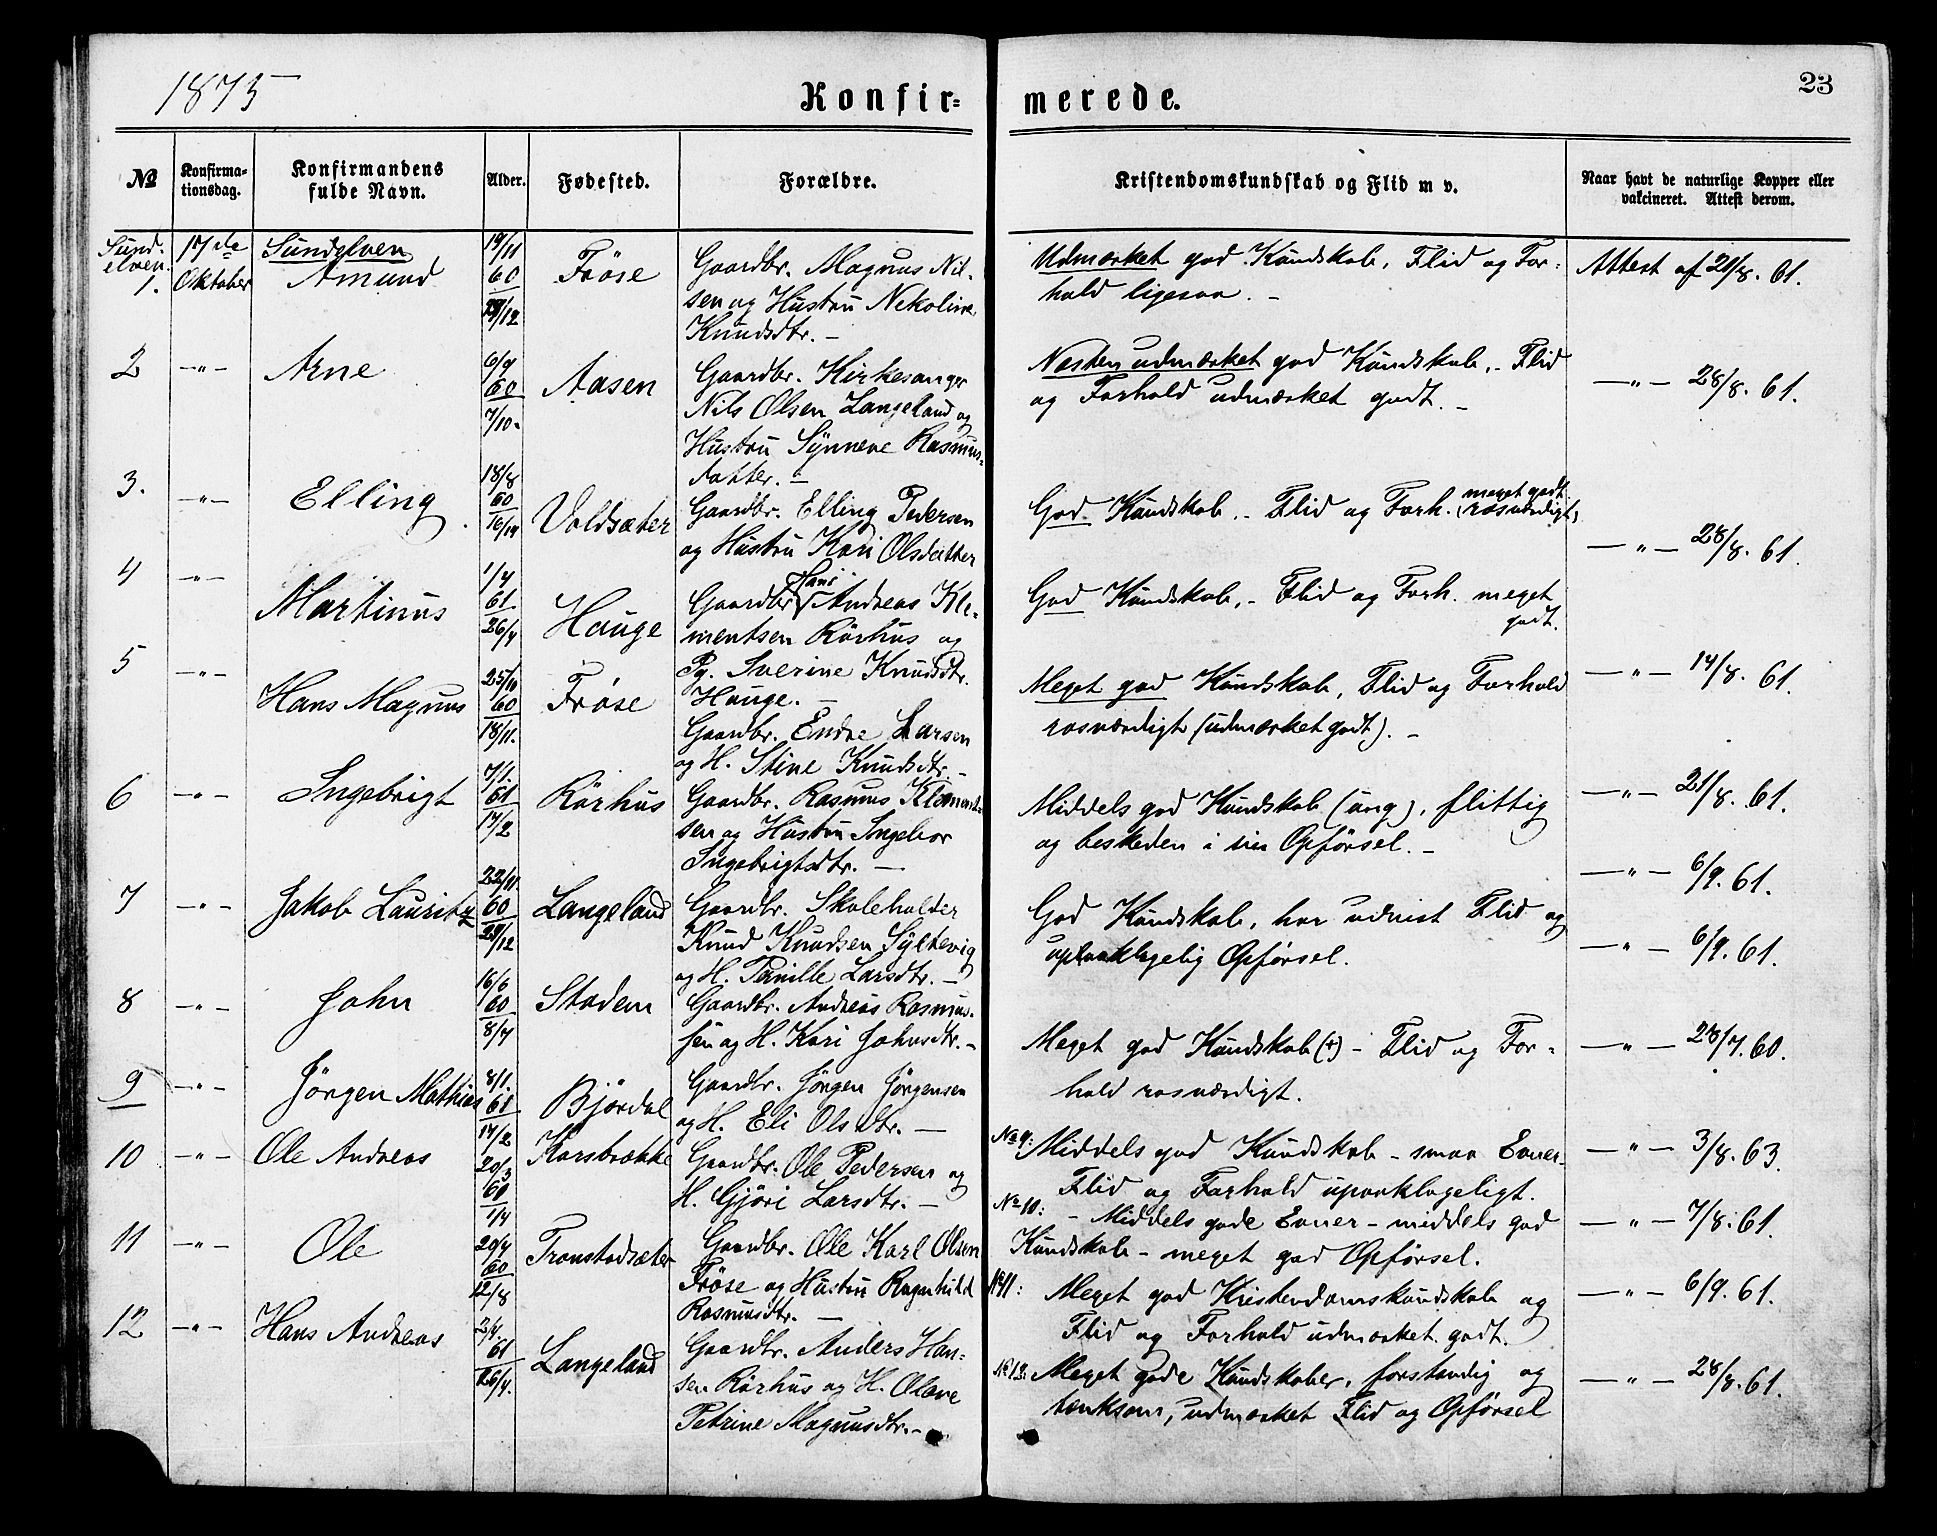 1875
Konfir=
merede.
23
No
Konfirma-
tionsdag.
Konfirmandens
fulde Navn.
Alder.
Fødested.
Forældre.
Kristendomskundskab og Flid m v.
Naar havt de naturlige Kopper eller
vakcineret. Attest derom.
Sund-
elven.
1.
17de
Oktober
Sundelven
Amund
19/11
60
/12
Fröse
Gaardbr. Magnus Nil-
sen og Hustru Nekoline
Knudsdtr. –
Udmærket god Kundskab, Flid og For-
hold ligesaa. –
Attest af 21/8. 61.
2
–"–
Arne
6/9
60
7/10.
Aasen
Gaardbr. Kirkesanger
Nils Olsen Langeland og
Hustru Synneve Rasmus-
datter. –
Næsten udmærket god Kundskab. – Flid
og Forhold udmærket godt. –
–"– 28/8. 61.
3.
–"–
Elling
18/8
60
Voldsæter
Gaardbr. Elling Pedersen
og Hustru Kari Olsdatter
God Kundskab. – Flid og Forh. meget godt
(rosværdigt)
–"– 28/8. 61.
4
–"–
Martinus
1/4
61
26/4
Hauge
Gaardbr. Hans Andreas Kle-
mentsen Rörhus og
Pg. Sverine Knudsdtr.
Hauge. –
God Kundskab. – Flid og Forh. meget
godt.
–"– 14/8. 61.
5
–"–
Hans Magnus
25/10
60
18/11.
Fröse
Gaardbr. Endre Larsen
og H. Stine Knudsdtr. –
Meget god Kundskab, Flid og Forhold
rosværdigt (udmærket godt). –
–"– 21/8. 61.
6
–"–
Ingebrigt
7/1.
61
17/2
Rörhus
Gaardbr. Rasmus Klement-
sen og Hustru Ingebor
Ingebrigtsdtr. –
Middels god Kundskab (ung), flittig
og beskeden i sin Opførsel. –
–"– 6/9. 61.
7
–"–
Jakob Lauritz
22/11.
60
29/12
Langeland
Gaardbr. Skoleholder
Knud Knudsen Syltevig
og H. Pernille Larsdtr. –
God Kundskab, har udvist Flid og
upaaklagelig Opførsel.
–"– 6/9. 61.
8
–"–
John
16/6
60
8/7
Stadem
Gaardbr. Andreas Rasmus-
sen og H. Kari Johnsdtr. –
Meget god Kundskab (+) – Flid og For-
hold rosværdigt.
–"– 28/7. 60.
9
–"–
Jørgen Mathias
8/1.
61
17/2
Bjørdal
Gaardbr. Jørgen Jørgensen
og H. Eli Olsdtr. –
No 9: Middels god Kundskab – smaa Evner –
Flid og Forhold upaaklageligt.
–"– 3/8. 63.
10
–"–
Ole Andreas
20/3
60
1/4
Korsbrække
Gaardbr. Ole Pedersen og
H. Gjøri Larsdtr. –
No 10: – Middels gode Evner – middels god
Kundskab – meget god Opførsel.
–"– 7/8. 61.
11
–"–
Ole
20/7
60
12/8
Tronstadsæter
Gaardbr. Ole Karl Olsen
Fröse og Hustru Ragnhild
Rasmusdtr. –
No 11: Meget god Kristendomskundskab og
Flid og Forhold udmærket godt.
–"– 6/9. 61.
12
–"–
Hans Andreas
2/4.
61
Langeland
Gaardbr. Anders Han-
sen Rörhus og H. Olave
Petrine Magnusdtr. –
No 12: Meget gode Kundskaber, forstandig og
tænksom, udmærket Flid og Opførsel
–"– 28/8. 61.